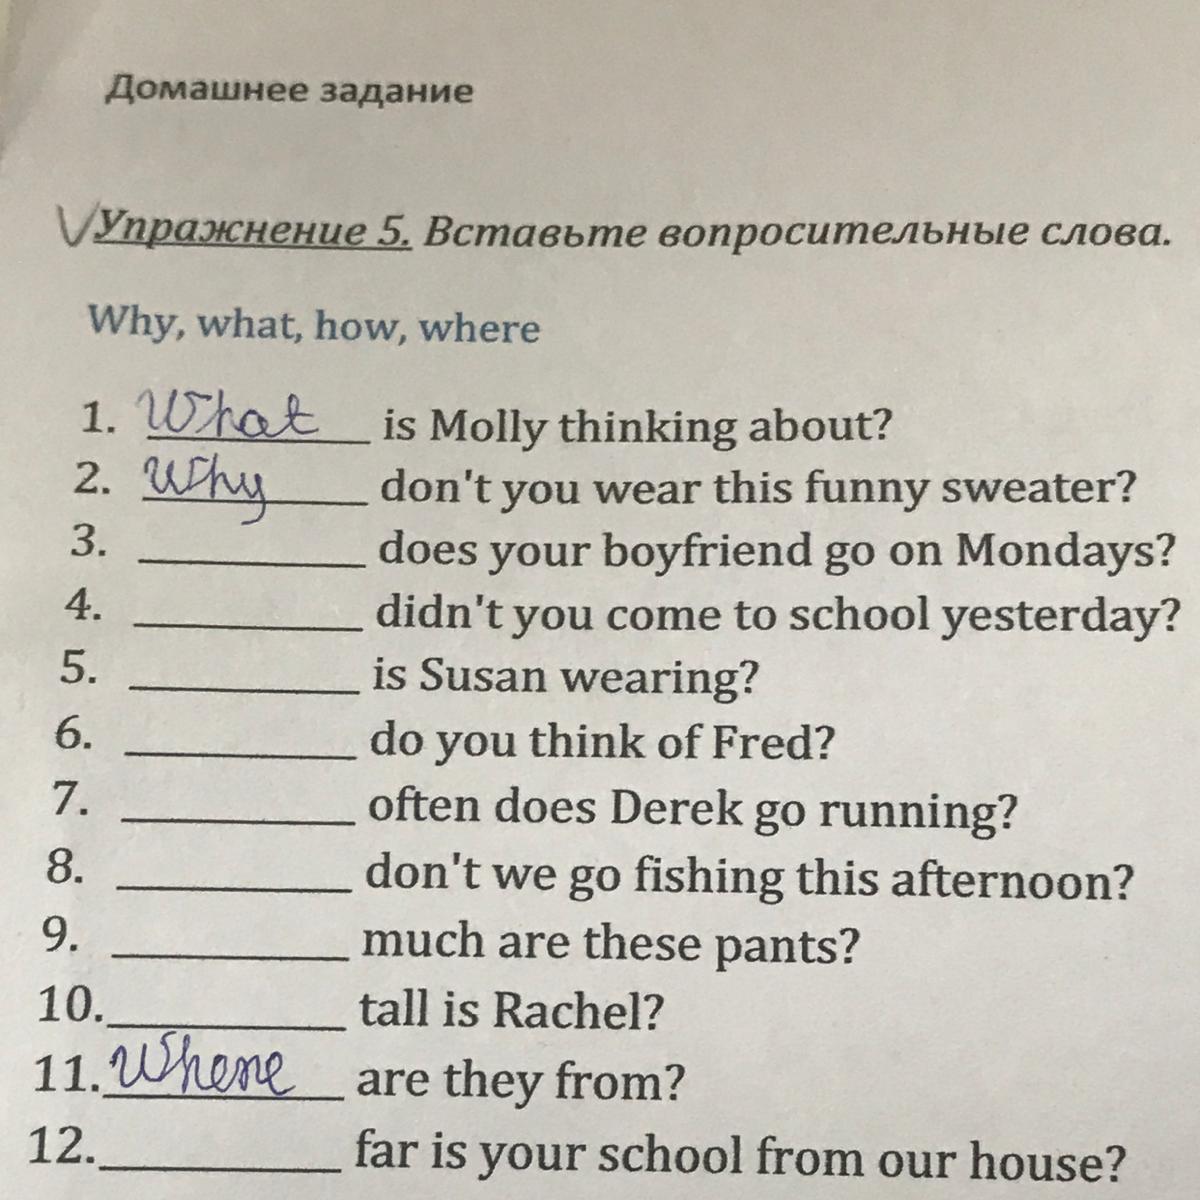 Домашнее задание
Упражнение 5. Вставьте вопросительные слова.
Why, what, how, where
1. What is Molly thinking about?
2. Why don't you wear this funny sweater?
3. ________ does your boyfriend go on Mondays?
4. ________ didn't you come to school yesterday?
5. ________ is Susan wearing?
6. ________ do you think of Fred?
7. ________ often does Derek go running?
8. ________ don't we go fishing this afternoon?
9. ________ much are these pants?
10. ________ tall is Rachel?
11. Where are they from?
12. ________ far is your school from our house?